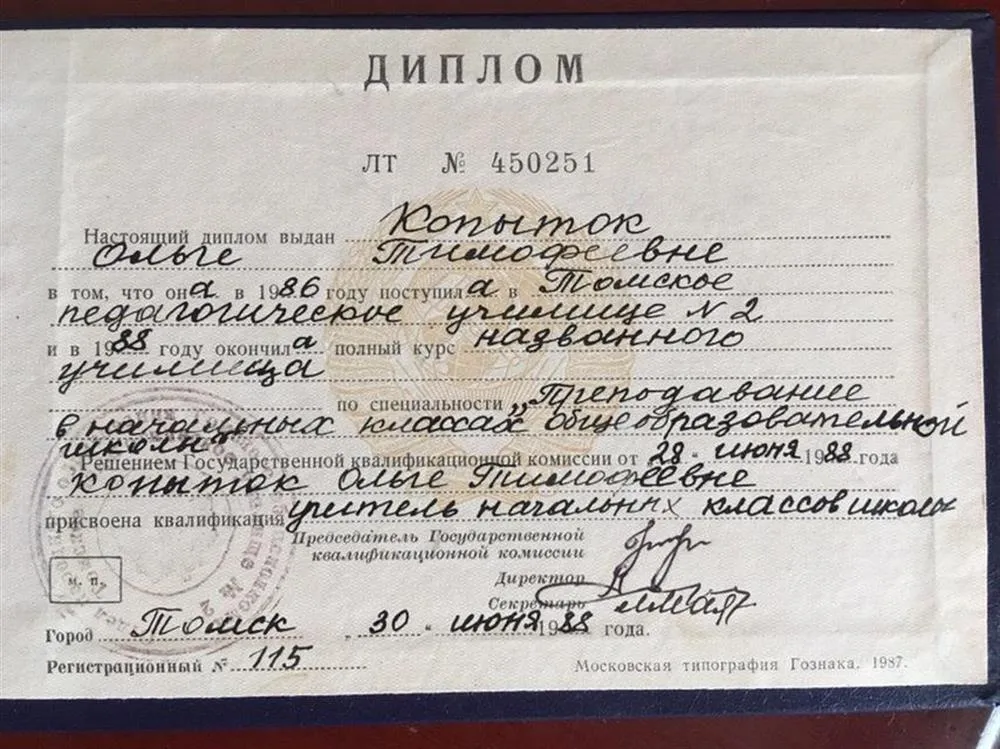 ДИПЛОМ
ЛТ № 450251
Настоящий диплом выдан Копыток
Ольге Тимофеевне
в том, что она в 1986 году поступила в Томское
педагогическое училище N 2
и в 1988 году окончила полный курс названного
училища
по специальности „Преподавание
в начальных классах общеобразовательной
школы"
Решением Государственной квалификационной комиссии от 28 " июня 1988 года
Копыток Ольге Тимофеевне
присвоена квалификация учитель начальных классов школы
Председатель Государственной
квалификационной комиссии
Директор
М. П.
Секретарь
Город Томск " 30 " июня 1988 года.
Регистрационный № 115
Московская типография Гознака. 1987.